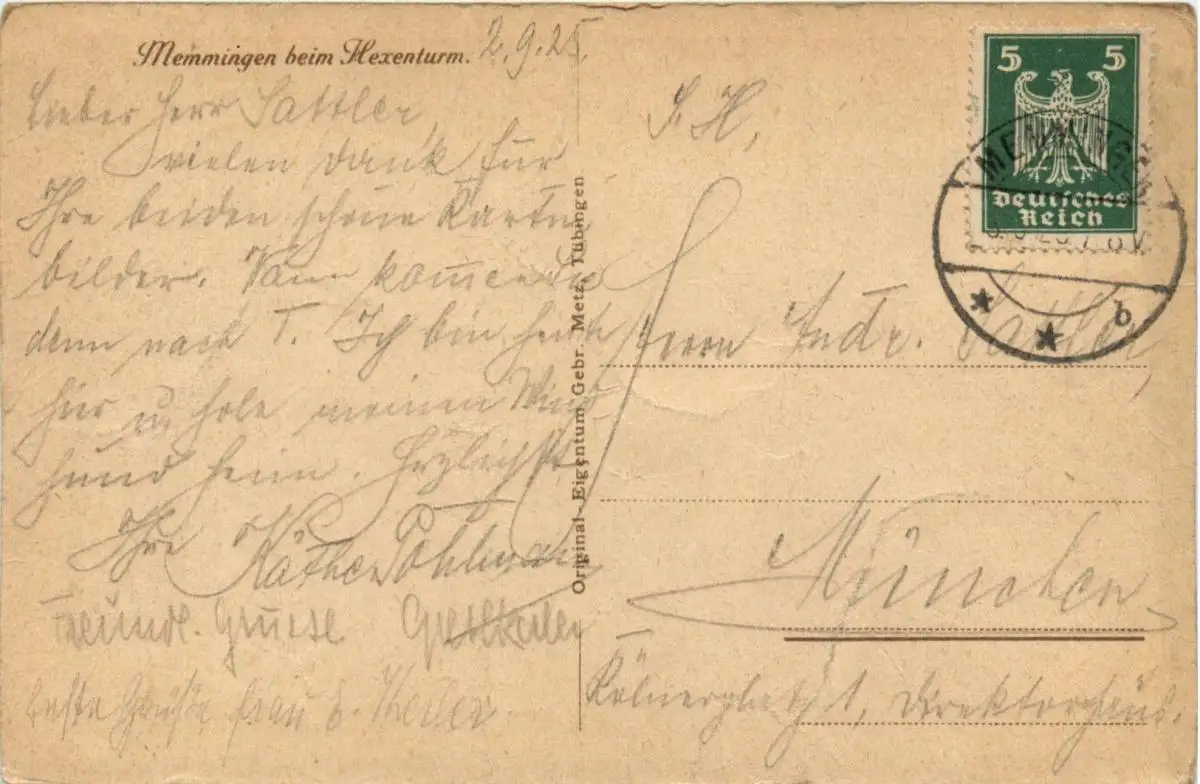 Memmingen beim Hexenturm. 2.9.25.
Lieber Herr Sattler,
vielen Dank für
Ihre beiden schöne Karten
bilder. Wann kommen
denn nach T. Ich bin heute
hier u. hole meinen Wind
hund heim. Herzlichst
Ihre Käthe Pohlmann
Freundl. Grüsse
beste Grüße Frau
Original-Eigentum Gebr. Metz, Tübingen
S. H,
5 5
Deutsches
Reich
MEMMINGEN
b
Herrn Andr. Sattler,
München
Kölnerplatz 1, Direktorhaus.